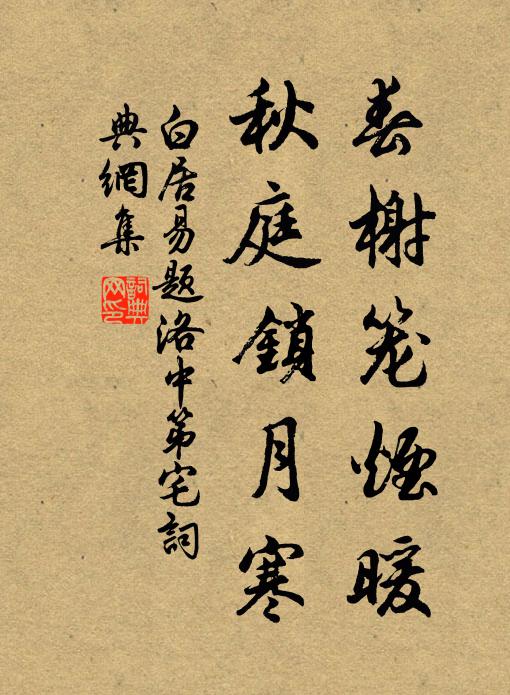 春榭笼煙暖
秋庭鎖月寒
白居易题洛中第宅詞
典網集
詞典网印